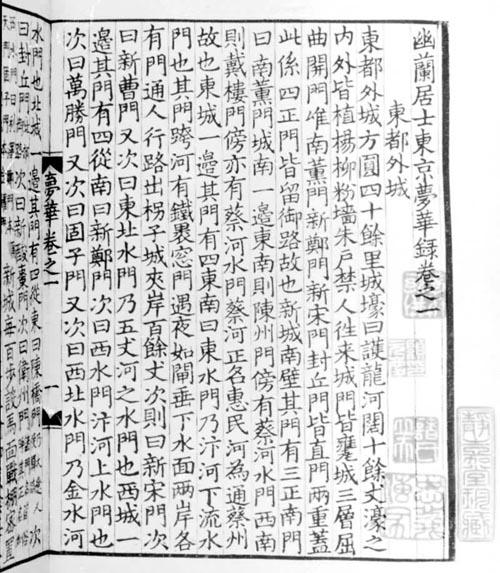 幽蘭居士東京夢華錄卷之一
東都外城
東都外城方圓四十餘里城壕曰護龍河闊十餘丈濠之
內外皆植楊柳粉墻朱戶禁人往來城門皆甕城三層屈
曲開門唯南薰門新鄭門新宋門封丘門皆直門兩重蓋
此係四正門皆留御路故也新城南壁其門有三正南門
曰南薰門城南一邊東南則陳州門傍有蔡河水門西南
則戴樓門傍亦有蔡河水門蔡河正名惠民河為通蔡州
故也東城一邊其門有四東南曰東水門乃汴河下流水
門也其門跨河有鐵裹窓門遇夜如閘垂下水面兩岸各
有門通人行路出拐子城夾岸百餘丈次則曰新宋門次
曰新曹門又次曰東北水門乃五丈河之水門也西城一
邊其門有四從南曰新鄭門次曰西水門汴河上水門也
次曰萬勝門又次曰固子門又次曰西北水門乃金水河
夢華卷之一
一
水門也北城一邊其門有四從東曰陳橋門次
曰封丘門次曰新酸棗門次曰衛州門
新城每百步設馬面戰棚密置